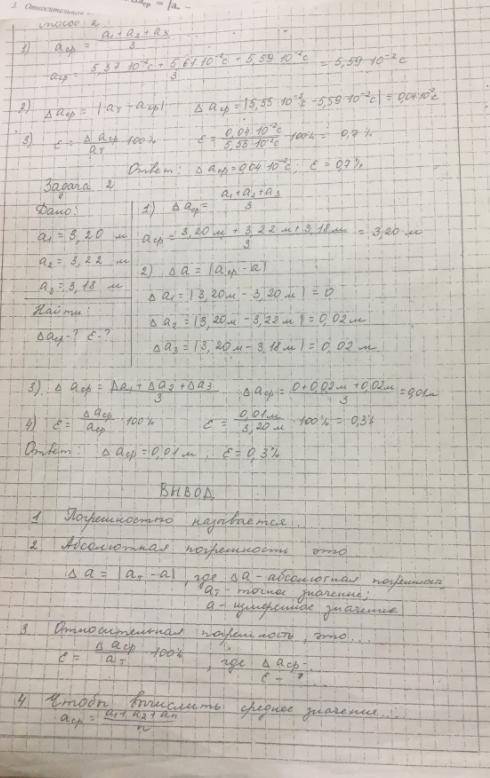 3. Относительная
способ: 2.
1) aср = a₁ + a₂ + a₃ / 3
aср = 5,57·10⁻²с + 5,61·10⁻²с + 5,59·10⁻²с / 3 = 5,59·10⁻²с
2) Δaср = |aт - aср| Δaср = |5,55·10⁻²с - 5,59·10⁻²с| = 0,04·10⁻²с
3) ε = Δaср / aт · 100% ε = 0,04·10⁻²с / 5,55·10⁻²с · 100% = 0,7%
Ответ: Δaср = 0,04·10⁻²с; ε = 0,7%.
Задача 2
Дано:
a₁ = 3,20 м
a₂ = 3,22 м
a₃ = 3,18 м
Найти:
Δaср - ? ε - ?
1) Δaср = a₁ + a₂ + a₃ / 3
aср = 3,20 м + 3,22 м + 3,18 м / 3 = 3,20 м
2) Δa = |aср - a|
Δa₁ = |3,20м - 3,20м| = 0
Δa₂ = |3,20м - 3,22м| = 0,02м
Δa₃ = |3,20м - 3,18м| = 0,02м
3) Δaср = Δa₁ + Δa₂ + Δa₃ / 3 Δaср = 0 + 0,02м + 0,02м / 3 = 0,01м
4) ε = Δaср / aср · 100% ε = 0,01м / 3,20м · 100% = 0,3%
Ответ: Δaср = 0,01 м; ε = 0,3%
ВЫВОД
1 Погрешностью называется...
2 Абсолютная погрешность это
Δa = |aт - a|, где Δa - абсолютная погрешность
aт - точное значение;
a - измеренное значение
3 Относительная погрешность, это...
ε = Δaср / aт · 100%, где Δaср - ...
ε - ?
4 Чтобы вычислить среднее значение...
aср = a₁ + a₂ + aп / n